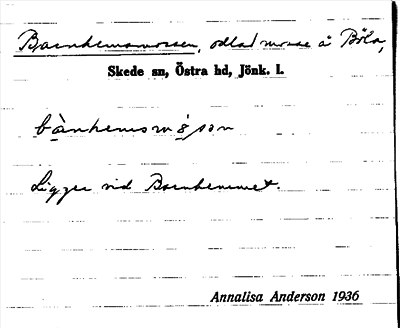 Barnhemsmossen, odlad mosse å Böla,
Skede sn, Östra hd, Jönk. l.
bà̠nhemsmo̠sən
Ligger vid Barnhemmet.
Annalisa Anderson 1936